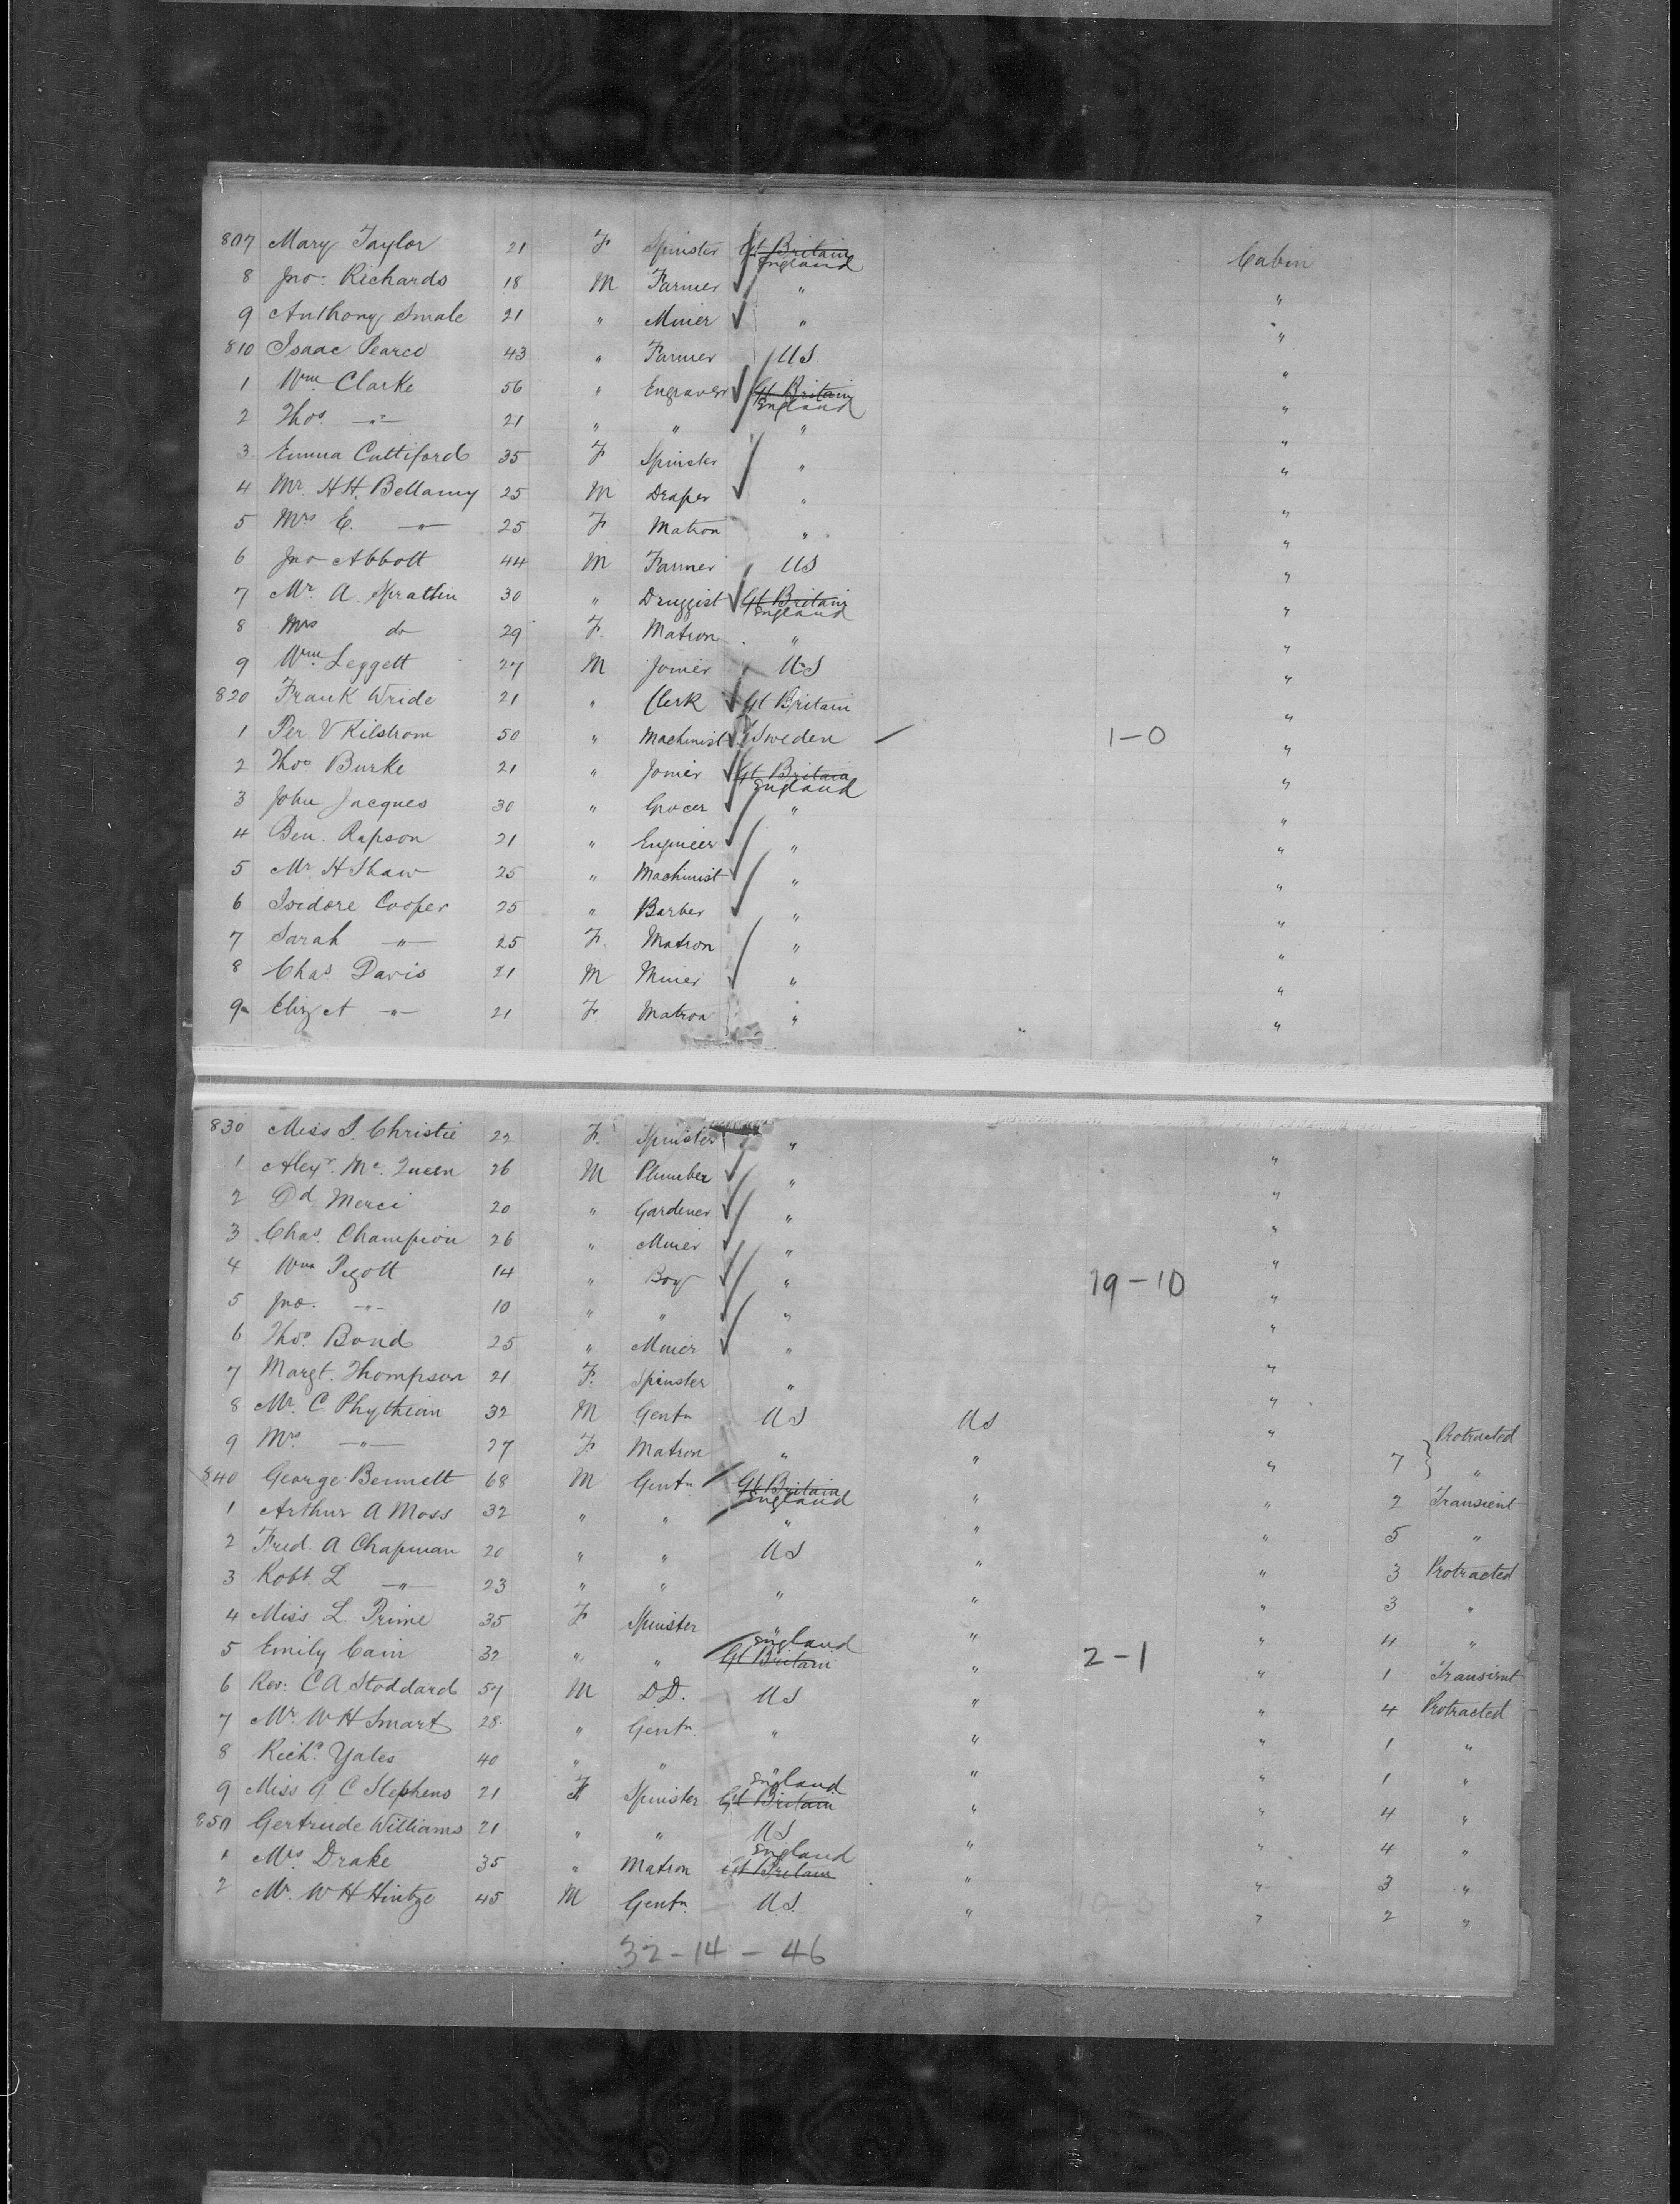 807 Mary Taylor 21 F Spinster Gt Britain England Cabin
8 Jno. Richards 18 M Farmer " "
9 Anthony Smale 21 " Miner " "
810 Isaac Pearce 43 " Farmer US "
1 Wm Clarke 56 " Engraver Gt Britain England "
2 Thos. -"- 21 " " " "
3 Emma Cuttiford 35 F Spinster " "
4 Mr. HH. Bellamy 25 M Draper " "
5 Mrs E. -"- 25 F Matron " "
6 Jno Abbott 44 M Farmer US "
7 Mr. A. Sprattin 30 " Druggist Gt Britain England "
8 Mrs do 29 F. Matron " "
9 Wm. Leggett 27 M Joiner US "
820 Frank Wride 21 " Clerk Gt Britain "
1 Per V Kilstrom 50 " Machinist Sweden 1-0 "
2 Thos Burke 21 " Joiner Gt Britain England "
3 John Jacques 30 " Grocer " "
4 Ben. Rapson 21 " Engineer " "
5 Mr. H Shaw 25 " Machinist " "
6 Isidore Cooper 25 " Barber " "
7 Sarah -"- 25 F. Matron " "
8 Chas Davis 21 M Miner " "
9 Eliz A -"- 21 F. Matron " " "
830 Miss J. Christie 22 F. Spinster " "
1 Alexr. Mc. Queen 26 M Plumber " "
2 Ed Merci 20 " Gardener " "
3 Chas. Champion 26 " Miner " "
4 Wm Pigott 14 " Boy " 19-10 "
5 Jno. -"- 10 " " " "
6 Thos. Bond 25 " Miner " "
7 Margt. Thompson 21 F. Spinster " "
8 Mr. C. Phythian 32 M Gentn US US " Protracted
9 Mrs. -"- 27 F Matron " " " 7 "
840 George Bennett 68 M Gentn Gt Britain England " " 2 Transient
1 Arthur A Moss 32 " " " " " 5 "
2 Fred. A Chapman 20 " " US " " 3 Protracted
3 Robt. L -"- 23 " " " " " 3 "
4 Miss L. Prime 35 F Spinster " " " 4 "
5 Emily Cain 32 " " England Gt Britain " 2-1 " 1 Transient
6 Rev: C A Stoddard 57 M D.D. US " " 4 Protracted
7 Mr W H Smart 28. " Gentn " " " 1 "
8 Richd. Yates 40 " " " " " 1 "
9 Miss G. C Stephens 21 F Spinster England Gt Britain " " 4 "
850 Gertrude Williams 21 " " US " " 4 "
1 Mrs. Drake 35 " Matron England Gt Britain " " 3 "
2 Mr. W H Hintze 45 M Gentn. U.S. " " 2 "
32-14-46